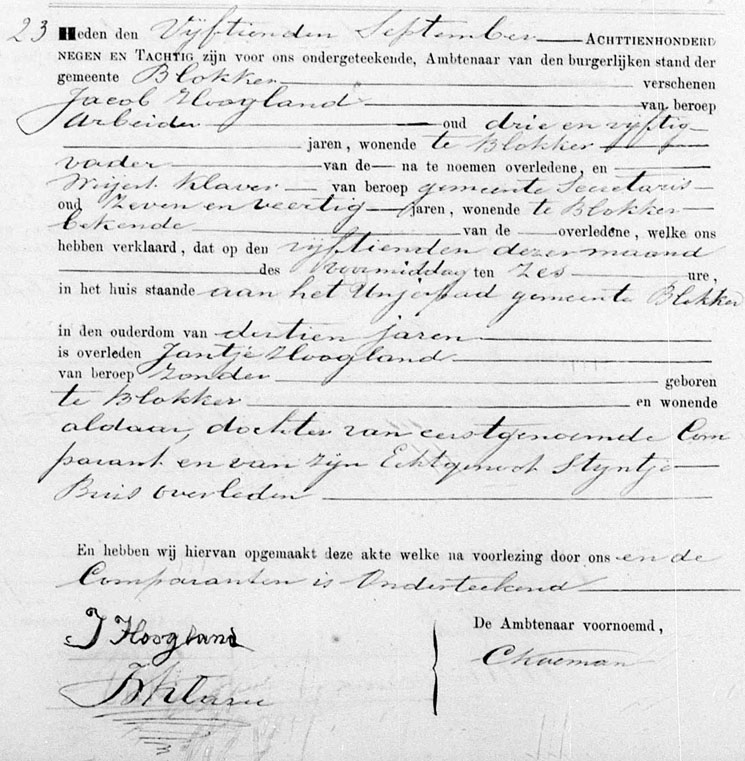 23 Heden den Vijftienden September ACHTTIENHONDERD
NEGEN EN TACHTIG zijn voor ons ondergeteekende, Ambtenaar van den burgerlijken stand der
gemeente Blokker verschenen
Jacob Hoogland van beroep
Arbeider oud drie en vijftig
jaren, wonende te Blokker
vader van de na te noemen overledene, en
Klaver van beroep gemeente Secretaris
oud Zeven en veertig jaren, wonende te Blokker
bekende van de overledene, welke ons
hebben verklaard, dat op den vijftienden dezer maand
des voormiddag ten Zes ure,
in het huis staande aan het Unjerpad gemeente Blokker
in den ouderdom van dertien jaren
is overleden Jantje Hoogland
van beroep zonder geboren
te Blokker en wonende
aldaar, dochter van eerstgenoemde Com
parant en van zijn Echtgenoot Styntje
Buis overleden
En hebben wij hiervan opgemaakt deze akte welke na voorlezing door ons en de
Comparanten is Onderteekend
J Hoogland
De Ambtenaar voornoemd,
CKoeman